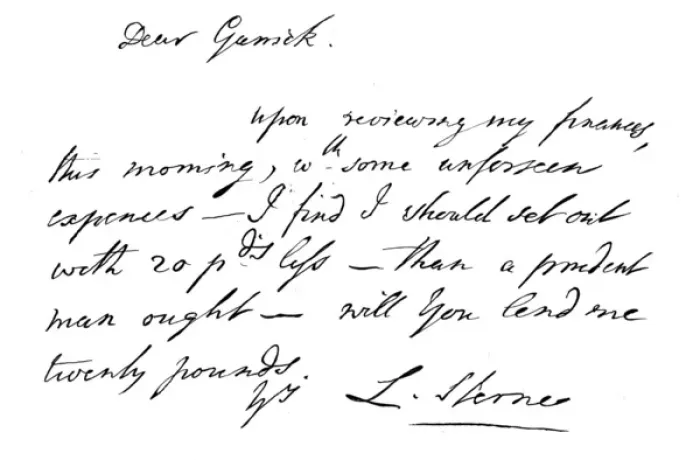 Dear Garrick.
upon reviewing my finances,
this morning, wth some unforseen
expences — I find I should set out
with 20 pds less — than a prudent
man ought — will You lend me
twenty pounds.
Yrs L. Sterne